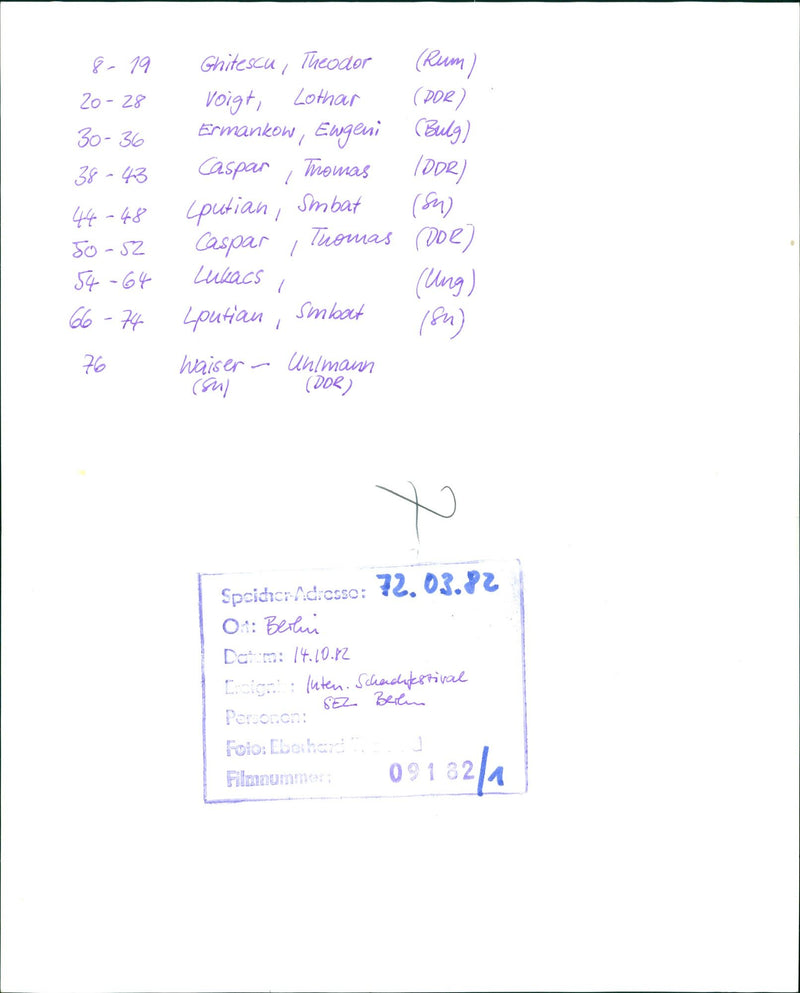 8 - 19 Ghitescu, Theodor (Rum)
20 - 28 Voigt, Lothar (DDR)
30 - 36 Ermankow, Ewgeni (Bulg)
38 - 43 Caspar, Thomas (DDR)
44 - 48 Lputian, Smbat (SU)
50 - 52 Caspar, Thomas (DDR)
54 - 64 Lukacs, (Ung)
66 - 74 Lputian, Smbat (SU)
76 Waiser — Uhlmann
(SU) (DDR)
Speicher-Adresse: 72.03.82
Ort: Berlin
Datum: 14.10.82
Ereignis: Intern. Schachfestival
SEZ Berlin
Personen:
Foto: Eberhard
Filmnummer: 09182/1